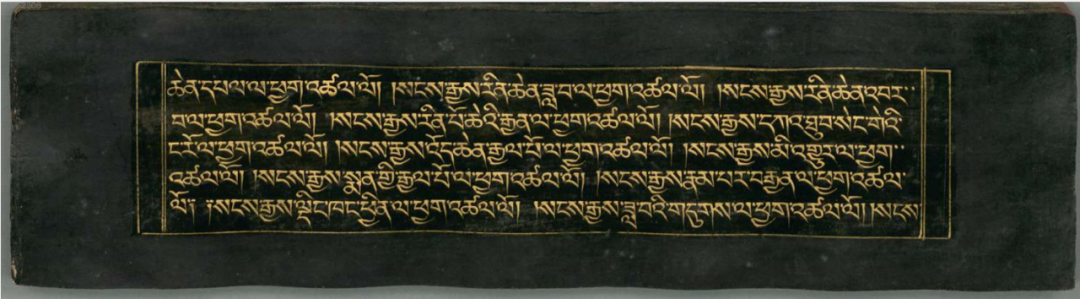 ཆེན་དཔལ་ལ་ཕྱག་འཚལ་ལོ། །སངས་རྒྱས་རིན་ཆེན་ཟླ་བ་ལ་ཕྱག་འཚལ་ལོ། །སངས་རྒྱས་རིན་ཆེན་འབར་
བ་ལ་ཕྱག་འཚལ་ལོ། །སངས་རྒྱས་རིན་པོ་ཆེའི་རྒྱན་ལ་ཕྱག་འཚལ་ལོ། །སངས་རྒྱས་དཀའ་ཐུབ་སེང་གེའི་
ང་རོ་ལ་ཕྱག་འཚལ་ལོ། །སངས་རྒྱས་འོད་ཆེན་རྒྱལ་པོ་ལ་ཕྱག་འཚལ་ལོ། །སངས་རྒྱས་མི་འགྱུར་ལ་ཕྱག་
འཚལ་ལོ། །སངས་རྒྱས་སྨན་གྱི་རྒྱལ་པོ་ལ་ཕྱག་འཚལ་ལོ། །སངས་རྒྱས་རྣམ་པར་བརྒྱན་ལ་ཕྱག་འཚལ་
ལོ། །སངས་རྒྱས་ལྡིང་ཁང་ཕྱིན་ལ་ཕྱག་འཚལ་ལོ། །སངས་རྒྱས་ཟླ་བའི་གདུགས་ལ་ཕྱག་འཚལ་ལོ། །སངས